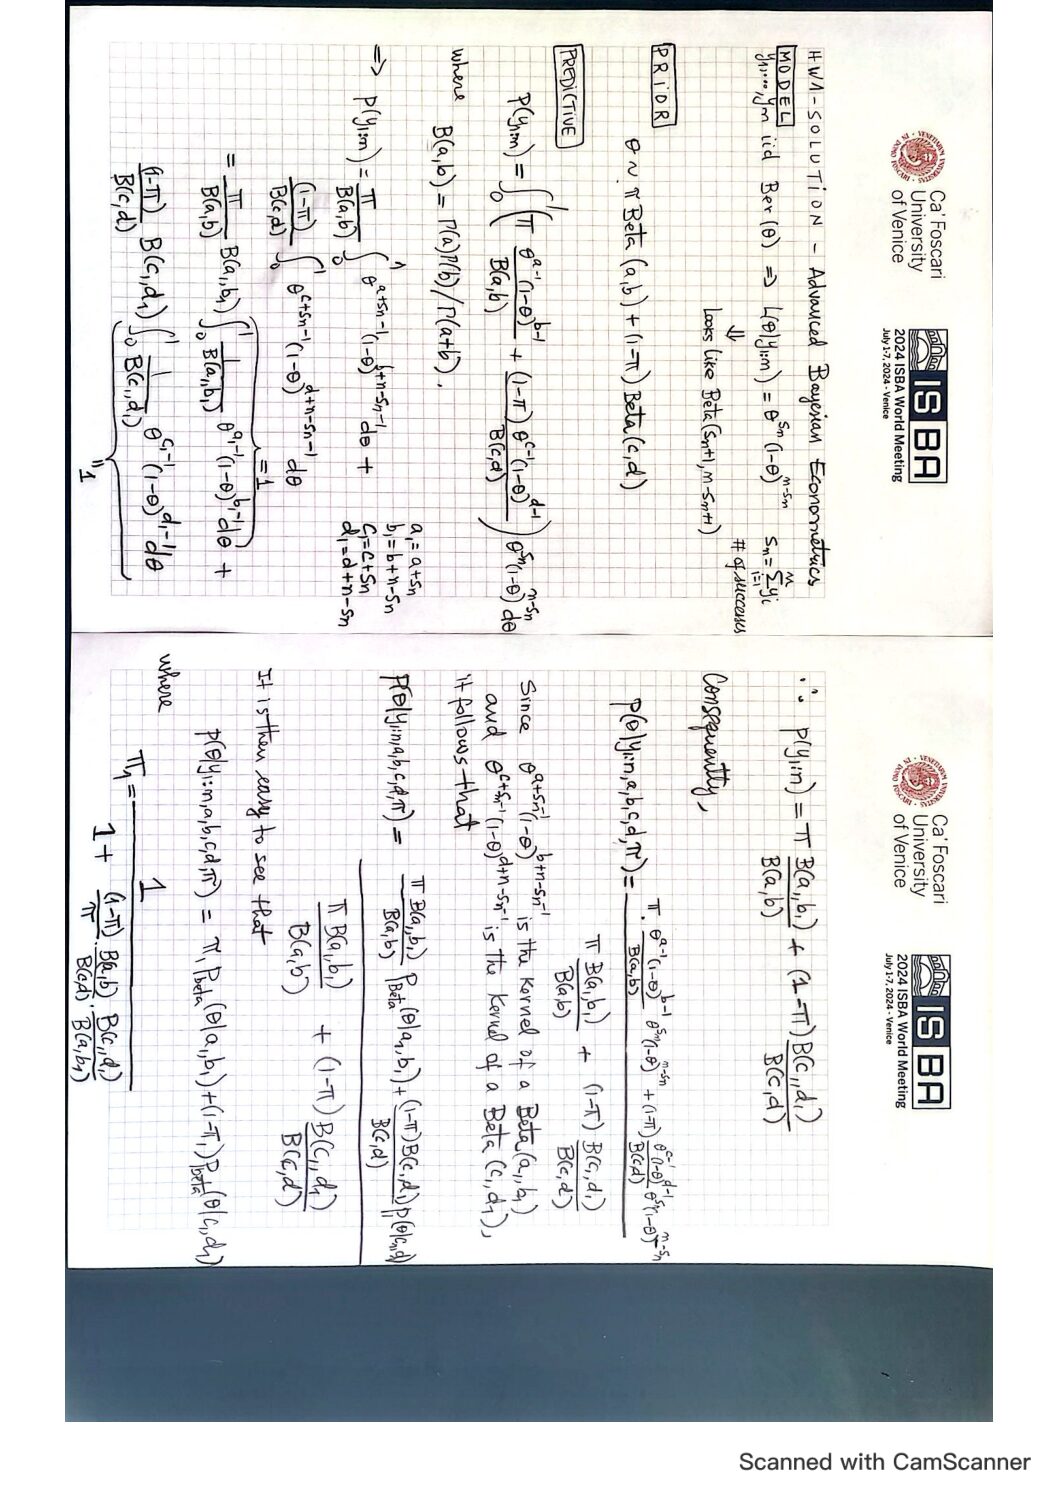 Ca' Foscari
University
of Venice
ISBA
2024 ISBA World Meeting
July 1-7, 2024 - Venice
HW1-SOLUTION - Advanced Bayesian Econometrics
MODEL
y1,...,yn iid Ber(θ) ⇒ L(θ|y1:n) = θ^Sn (1-θ)^(n-Sn)   Sn = Σ_{i=1}^n yi
# of success
⇓
Looks like Beta(Sn+1, n-Sn+1)
PRIOR
θ ~ π Beta(a,b) + (1-π) Beta(c,d)
PREDICTIVE
P(y1:n) = ∫_0^1 ( π θ^(a-1) (1-θ)^(b-1) / B(a,b) + (1-π) θ^(c-1) (1-θ)^(d-1) / B(c,d) ) θ^Sn (1-θ)^(n-Sn) dθ
where B(a,b) = Γ(a)Γ(b)/Γ(a+b).
⇒ P(y1:n) = π / B(a,b) ∫_0^1 θ^(a+Sn-1) (1-θ)^(b+n-Sn-1) dθ +
(1-π) / B(c,d) ∫_0^1 θ^(c+Sn-1) (1-θ)^(d+n-Sn-1) dθ
a1 = a+Sn
b1 = b+n-Sn
c1 = c+Sn
d1 = d+n-Sn
= π / B(a,b) B(a1,b1) ∫_0^1 1 / B(a1,b1) θ^(a1-1) (1-θ)^(b1-1) dθ +
=1
(1-π) / B(c,d) B(c1,d1) ∫_0^1 1 / B(c1,d1) θ^(c1-1) (1-θ)^(d1-1) dθ
"1
Ca' Foscari
University
of Venice
ISBA
2024 ISBA World Meeting
July 1-7, 2024 - Venice
∴ P(y1:n) = π B(a1,b1) / B(a,b) + (1-π) B(c1,d1) / B(c,d)
Consequently,
P(θ|y1:n,a,b,c,d,π) = π · θ^(a-1) (1-θ)^(b-1) / B(a,b) θ^Sn (1-θ)^(n-Sn) + (1-π) θ^(c-1) (1-θ)^(d-1) / B(c,d) θ^Sn (1-θ)^(n-Sn)
π B(a1,b1) / B(a,b) + (1-π) B(c1,d1) / B(c,d)
Since θ^(a+Sn-1) (1-θ)^(b+n-Sn-1) is the kernel of a Beta(a1,b1)
and θ^(c+Sn-1) (1-θ)^(d+n-Sn-1) is the kernel of a Beta(c1,d1),
it follows that
P(θ|y1:n,a,b,c,d,π) = π B(a1,b1) / B(a,b) P_Beta(θ|a1,b1) + (1-π) B(c1,d1) / B(c,d) P(θ|c1,d1)
π B(a1,b1) / B(a,b) + (1-π) B(c1,d1) / B(c,d)
It is then easy to see that
P(θ|y1:n,a,b,c,d,π) = π1 P_beta(θ|a1,b1) + (1-π1) P_beta(θ|c1,d1)
where
π1 = 1 / 1 + (1-π) / π B(a,b) / B(c,d) · B(c1,d1) / B(a1,b1)
Scanned with CamScanner